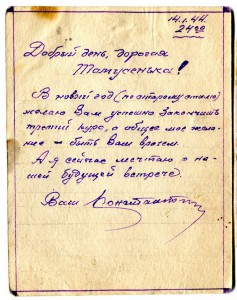 14.1.44.
24 00
Добрый день, дорогая
Тамусенька!
В новый год (по старому стилю)
желаю Вам успешно закончить
третий курс, а общее мое жела-
ние – быть Вам врачем.
А я сейчас мечтаю о на-
шей будущей встрече.
Ваш Константин